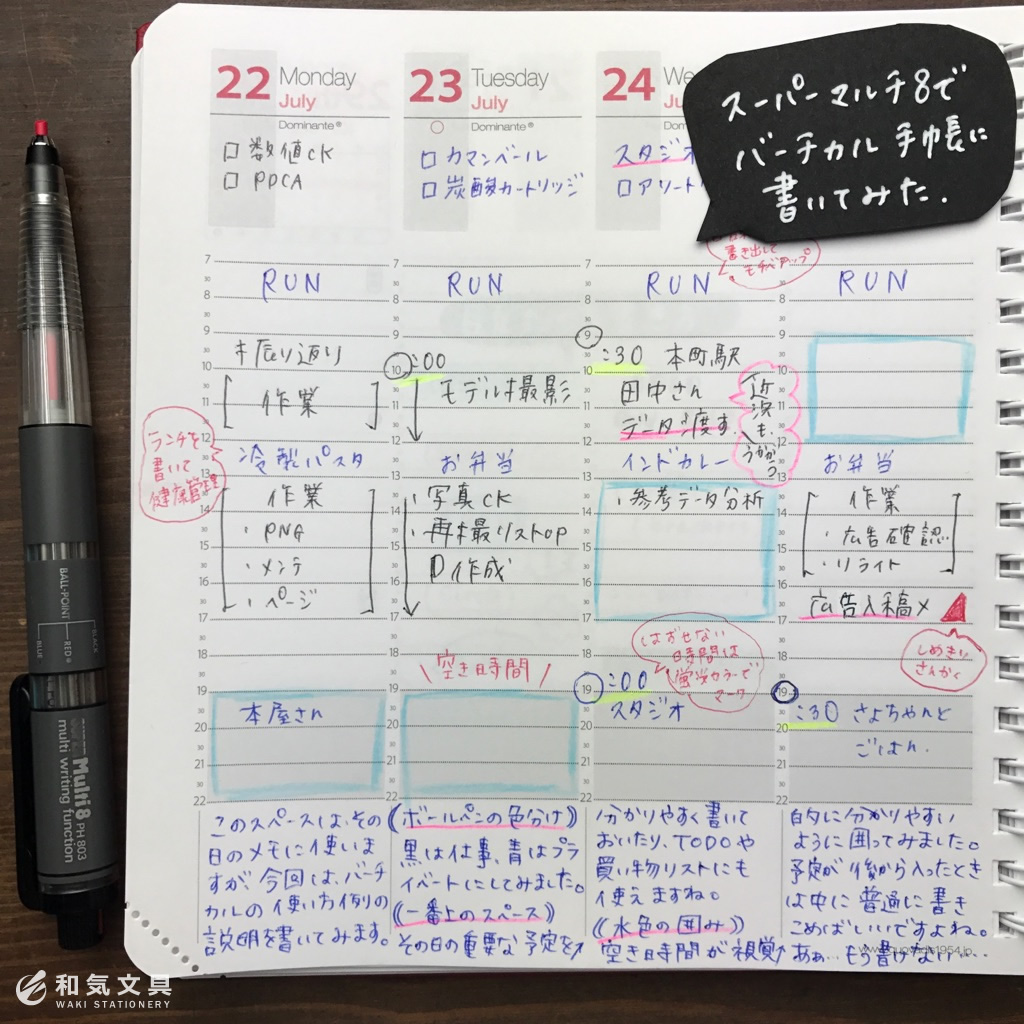 スーパーマルチ8で
バーチカル手帳に
書いてみた.
22 Monday
July
Dominante®
□ 数値CK
□ PDCA
23 Tuesday
July
Dominante®
□ カマンベール
□ 炭酸カートリッジ
24 We
Dominante®
スタジオ
□ アソート
書き出して
モチベアップ
7
8
9
10
11
12
13
14
15
16
17
18
19
20
21
22
RUN
振り返り
作業
冷製パスタ
作業
・PNG
・メンテ
・ページ
本屋さん
ランチを
書いて
健康管理
RUN
:00
モデル撮影
お弁当
・写真CK
・再撮リストOP
作成
\空き時間/
RUN
:30 本町駅
田中さん
データ渡す
近況も
うかがう?
インドカレー
・参考データ分析
はずせない
時間は
蛍光カラーで
マーク
:00
スタジオ
RUN
お弁当
作業
・広告確認
・リライト
広告入稿〆
しめきり
さんかく
:30 さよちゃんと
ごはん.
このスペースは、その
日のメモに使いま
すが、今回は、バーチ
カルの使い方例の
説明を書いてみます。
《ボールペンの色分け》
黒は仕事、青はプラ
イベートにしてみました。
《一番上のスペース》
その日の重要な予定を↗
分かりやすく書いて
おいたり、TODOや
買い物リストにも
使えますね。
《水色の囲み》
空き時間が視覚↗
的に分かりやすい
ように囲ってみました。
予定が後から入ったとき
は中に普通に書き
こめばいいですよね。
あぁ…もう書けない…
BALL-POINT
BLUE
RED
BLACK
Multi8 PH 803
multi writing function
和気文具
WAKI STATIONERY